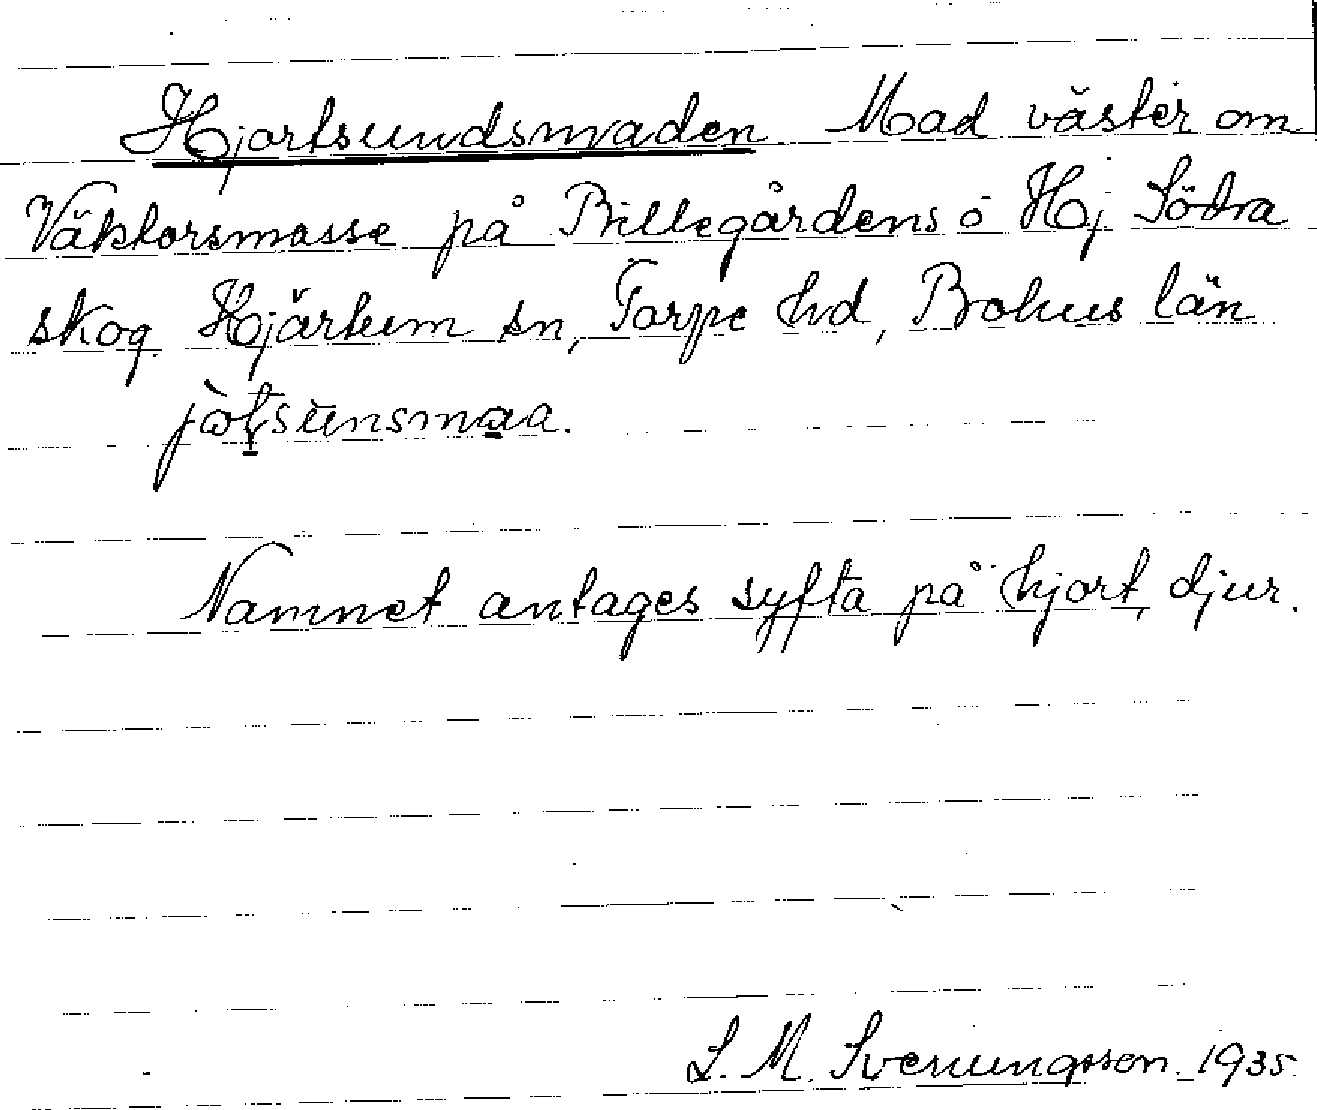 Hjortsundsmaden Mad väster om
Väktorsmosse på Billegårdens ö Hj Södra
skog Hjärtum sn, Torpe hd, Bohus län
jòtsunsmaa.
Namnet antages syfta på hjort, djur.
L. M. Svenungsson. 1935